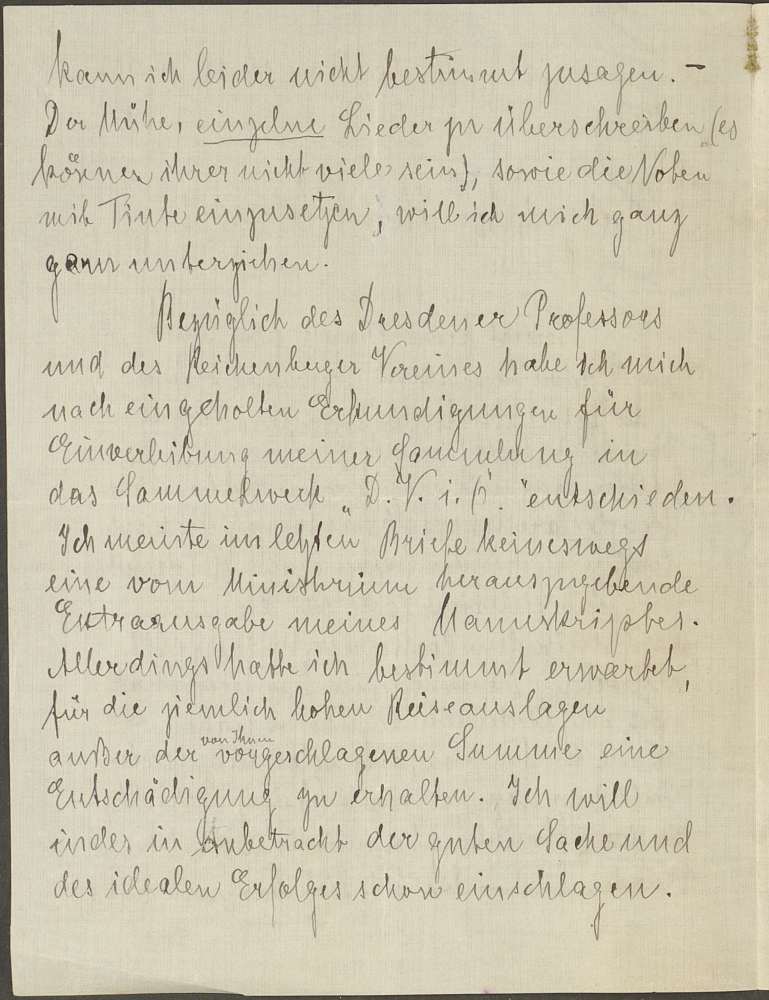 kann ich leider nicht bestimmt zusagen. –
Der Mühe, einzelne Lieder zu überschreiben (es
können ihrer nicht viele sein), sowie die Noten
mit Tinte einzusetzen, will ich mich ganz
gern unterziehen.
Bezüglich des Dresdener Professors
und des Reichenberger Vereines habe ich mich
nach eingeholten Erkundigungen für
Einverleibung meiner Sammlung in
das Sammelwerk „D. V. i. Ö." entschieden.
Ich meinte im letzten Briefe keineswegs
eine vom Ministerium herauszugebende
Extraausgabe meines Manuskriptes.
Allerdings hatte ich bestimmt erwartet,
für die ziemlich hohen Reiseauslagen
außer der von Ihnen vorgeschlagenen Summe eine
Entschädigung zu erhalten. Ich will
indes in Anbetracht der guten Sache und
des idealen Erfolges schon einschlagen.